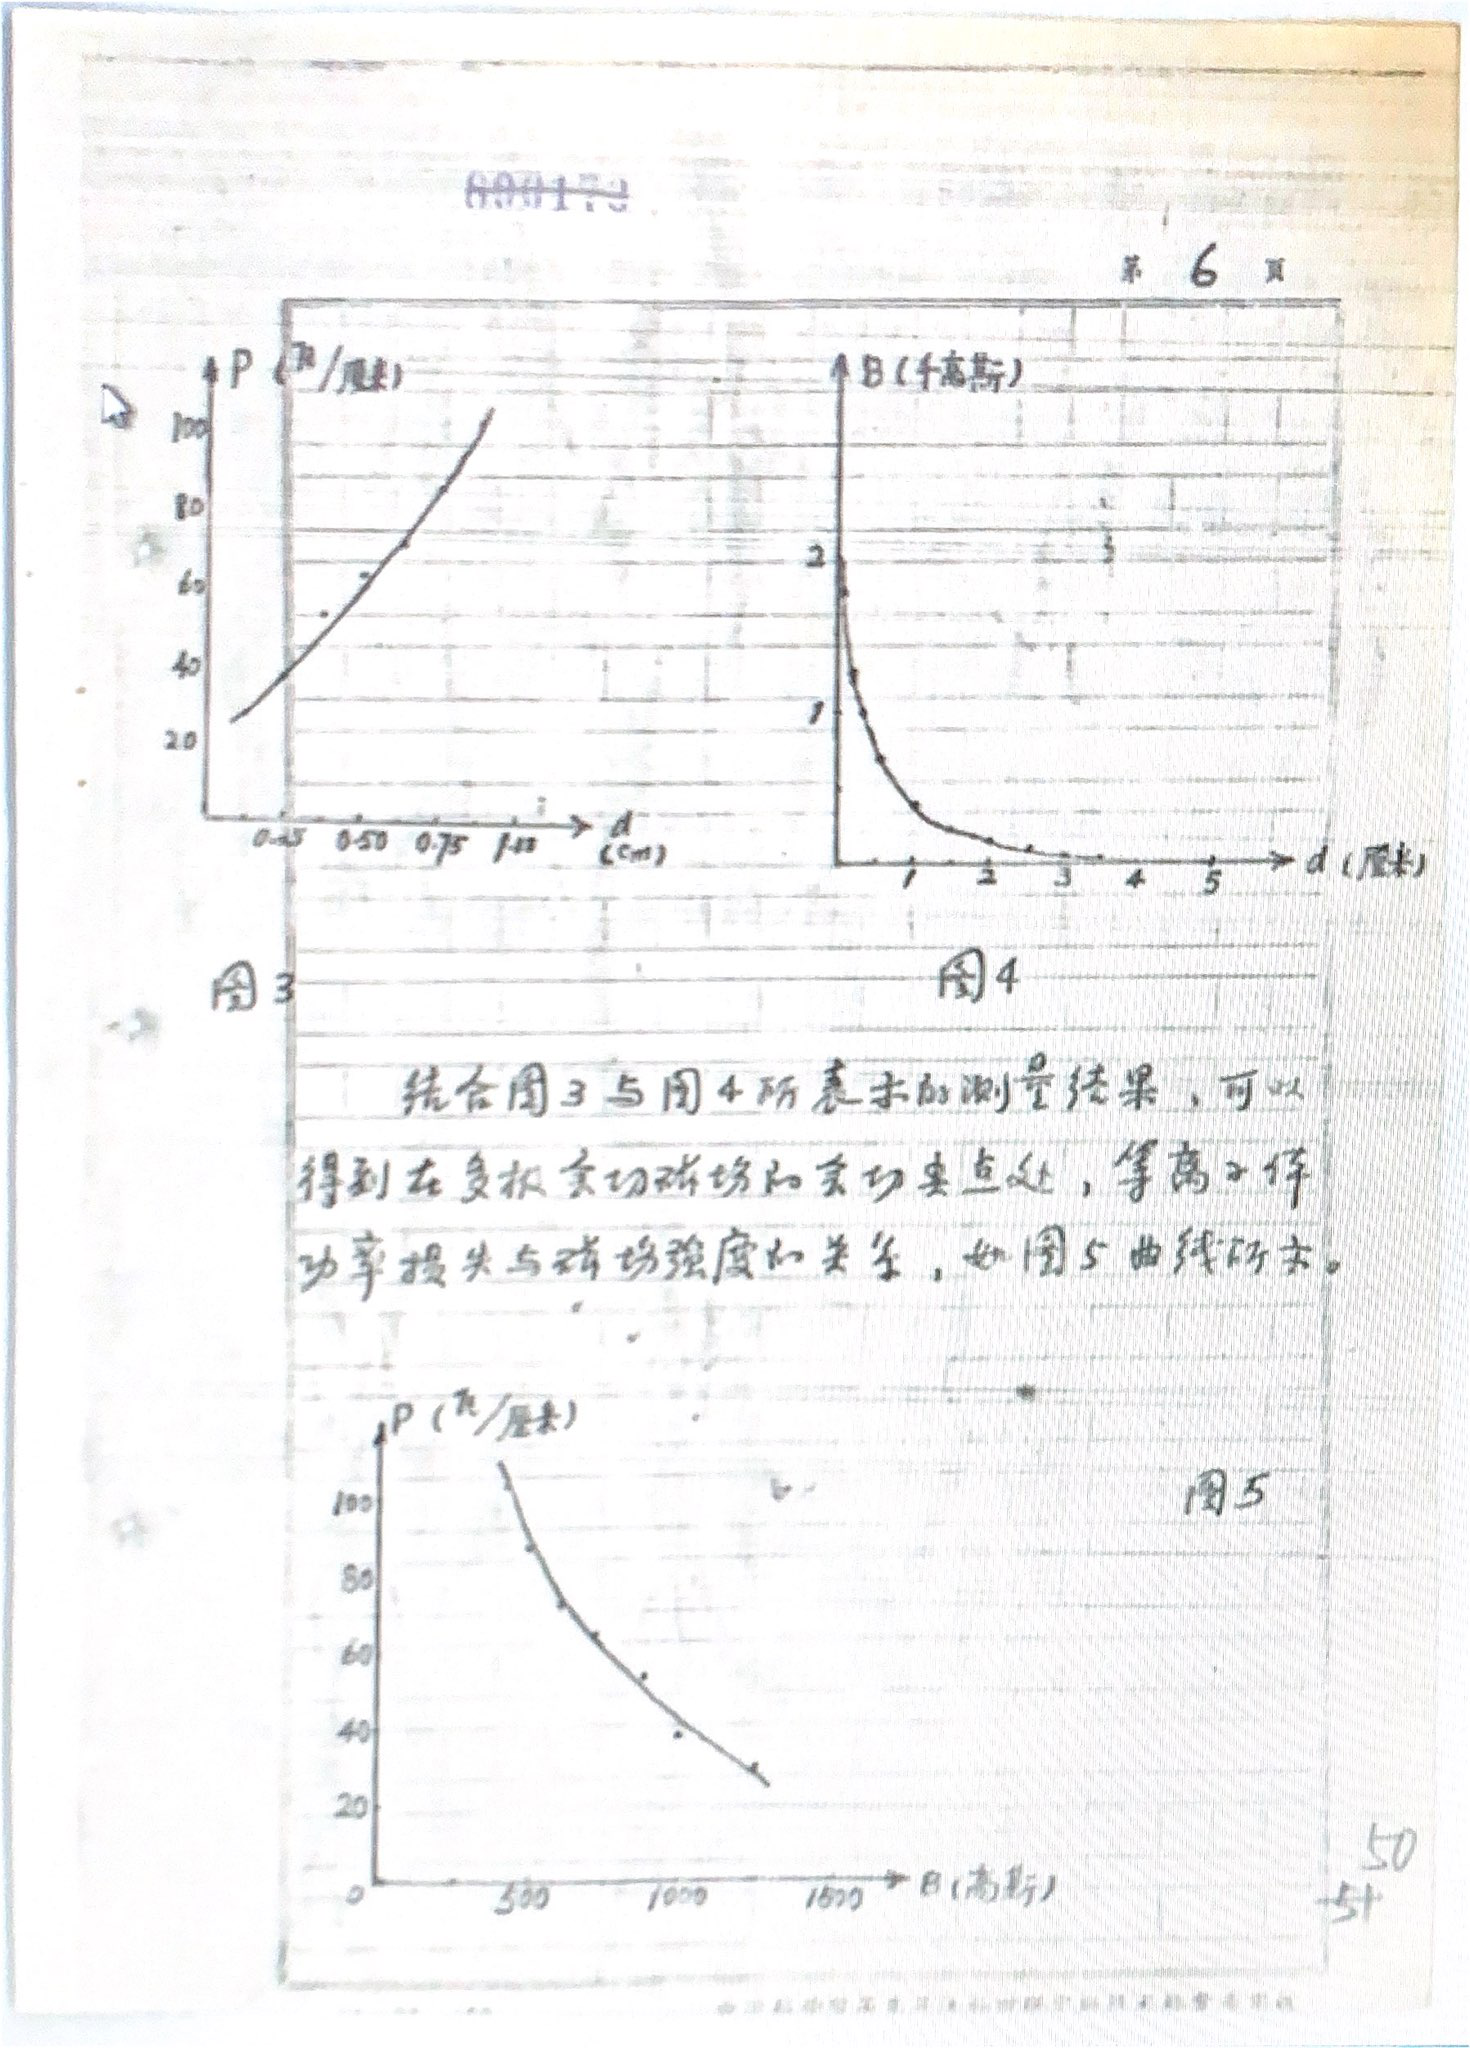 第 6 页
P (瓦/厘米)
100
80
60
40
20
0.25 0.50 0.75 1.00
d
(cm)
图3
B (千高斯)
2
1
1 2 3 4 5
d (厘米)
图4
结合图3与图4所表示的测量结果，可以
得到在多极会切磁场的会切尖点处，等离子体
功率损失与磁场强度的关系，如图5曲线所示。
P (瓦/厘米)
100
80
60
40
20
0 500 1000 1500
B (高斯)
图5
50
51